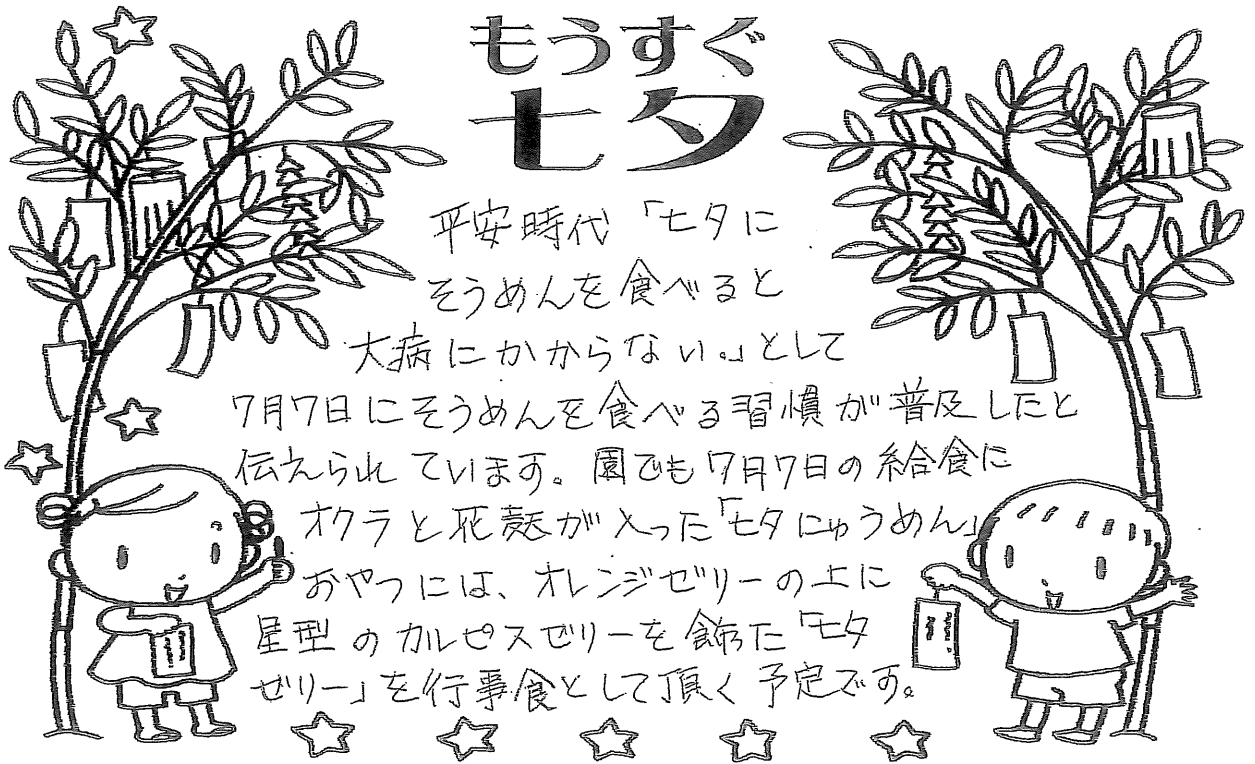 もうすぐ
七夕
平安時代「七夕に
そうめんを食べると
大病にかからない。」として
7月7日にそうめんを食べる習慣が普及したと
伝えられています。園でも7月7日の給食に
オクラと花麩が入った「七夕にゅうめん」
おやつには、オレンジゼリーの上に
星型のカルピスゼリーを飾った「七夕
ゼリー」を行事食として頂く予定です。